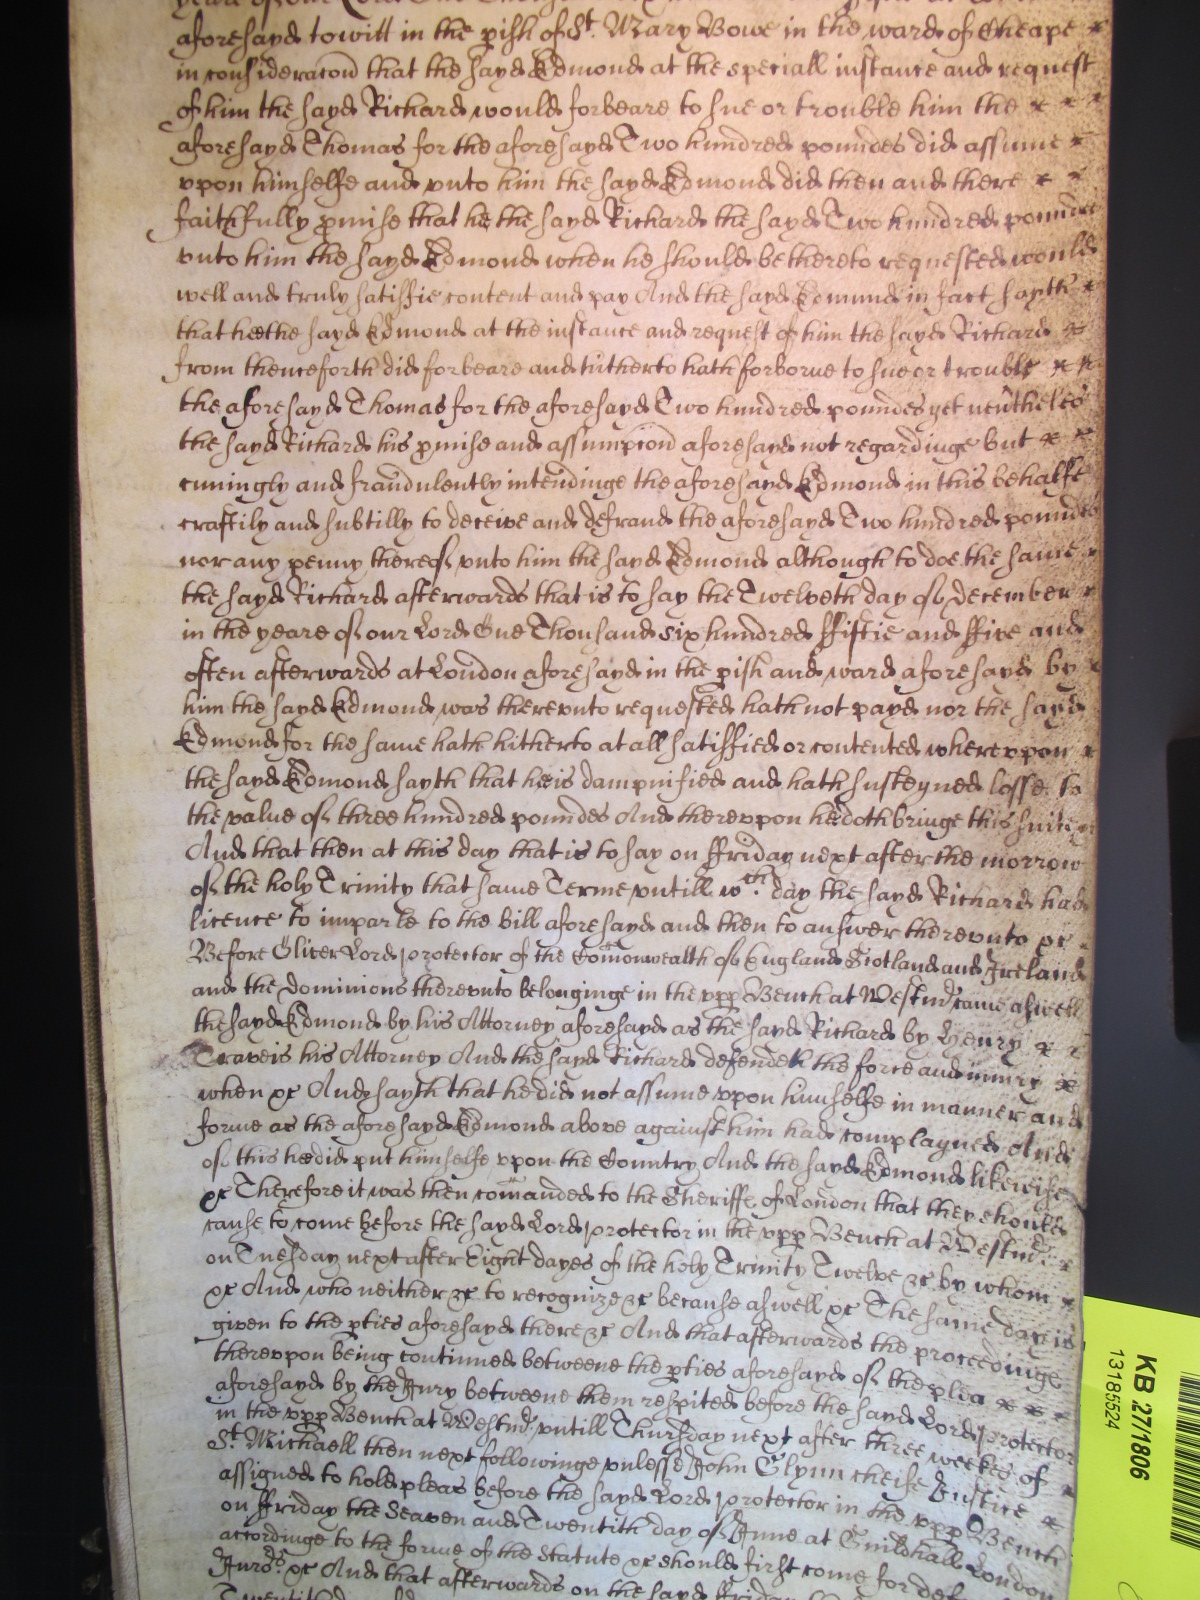 aforesayd towitt in the pish of St. Mary Bowe in the ward of Cheape
in consideracon that the sayd Edmond at the speciall instance and request
of him the sayd Richard would forbeare to sue or trouble him the
aforesayd Thomas for the aforesayd Two hundred poundes did assume
vpon himselfe and vnto him the sayd Edmond did then and there
faithfully pmise that he the sayd Richard the sayd Two hundred poundes
vnto him the sayd Edmond when he should be thereto requested would
well and truly satisfie content and pay And the sayd Edmund in fact sayth
that hee the sayd Edmond at the instance and request of him the sayd Richard
from thenceforth did forbeare and hitherto hath forborne to sue or trouble
the aforesayd Thomas for the aforesayd Two hundred poundes yet nevtheles
the sayd Richard his pmise and assumpcion aforesayd not regardinge but
cuningly and fraudulently intendinge the aforesayd Edmond in this behalfe
craftily and subtilly to deceive and defraud the aforesayd Two hundred poundes
nor any penny thereof vnto him the sayd Edmond although to doe the same
the sayd Richard afterwards that is to say the Twelveth day of December
in the yeare of our Lord One Thousand six hundred ffiftie and ffive and
often afterwards at London aforesayd in the pish and ward aforesayd by
him the sayd Edmond was therevnto requested hath not payd nor the sayd
Edmond for the same hath hitherto at all satisfied or contented wherevpon
the sayd Edmond sayth that he is dampnified and hath susteyned losse to
the value of three hundred poundes And therevpon hee doth bringe this suite
And that then at this day that is to say on ffriday next after the morrow
of the holy Trinity that same Terme vntill wch. day the sayd Richard had
licence to imparle to the bill aforesayd and then to answer therevnto &c
Before Oliver Lord protector of the Comonwealth of England Scotland and Ireland
and the dominions therevnto belonginge in the vpp Bench at Westmr came aswell
the sayd Edmond by his Attorney aforesayd as the sayd Richard by Henry
Traveis his Attorney And the sayd Richard defendeth the force and iniury
when &c And sayth that he did not assume vpon himselfe in manner and
forme as the aforesayd Edmond above against him had complayned And
of this hee did put himselfe vpon the Country And the sayd Edmond likewise
&c Therefore it was then comanded to the Sheriffe of London that they should
cause to come before the sayd Lord protector in the vpp Bench at Westmr.
on Tuesday next after Eight dayes of the holy Trinity Twelve &c by whom
&c And who neither &c to recognize &c because aswell &c The same day is
given to the pties aforesayd there &c And that afterwards the proceedinge
therevpon being continued betweene the pties aforesayd of the plea
aforesayd by the Jury betweene them respited before the sayd Lord protector
in the vpp Bench at Westmr vntill Thursday next after three weekes of
St. Michaell then next followinge vnlesse John Glynn cheife Justice
assigned to hold pleas before the sayd Lord protector in the vpp Bench
on ffriday the Seaven and Twentith day of June at Guildhall London
accordinge to the forme of the statute &c should first come for
Jurors. &c And that afterwards on the sayd ffriday
KB 27/1806
13185524